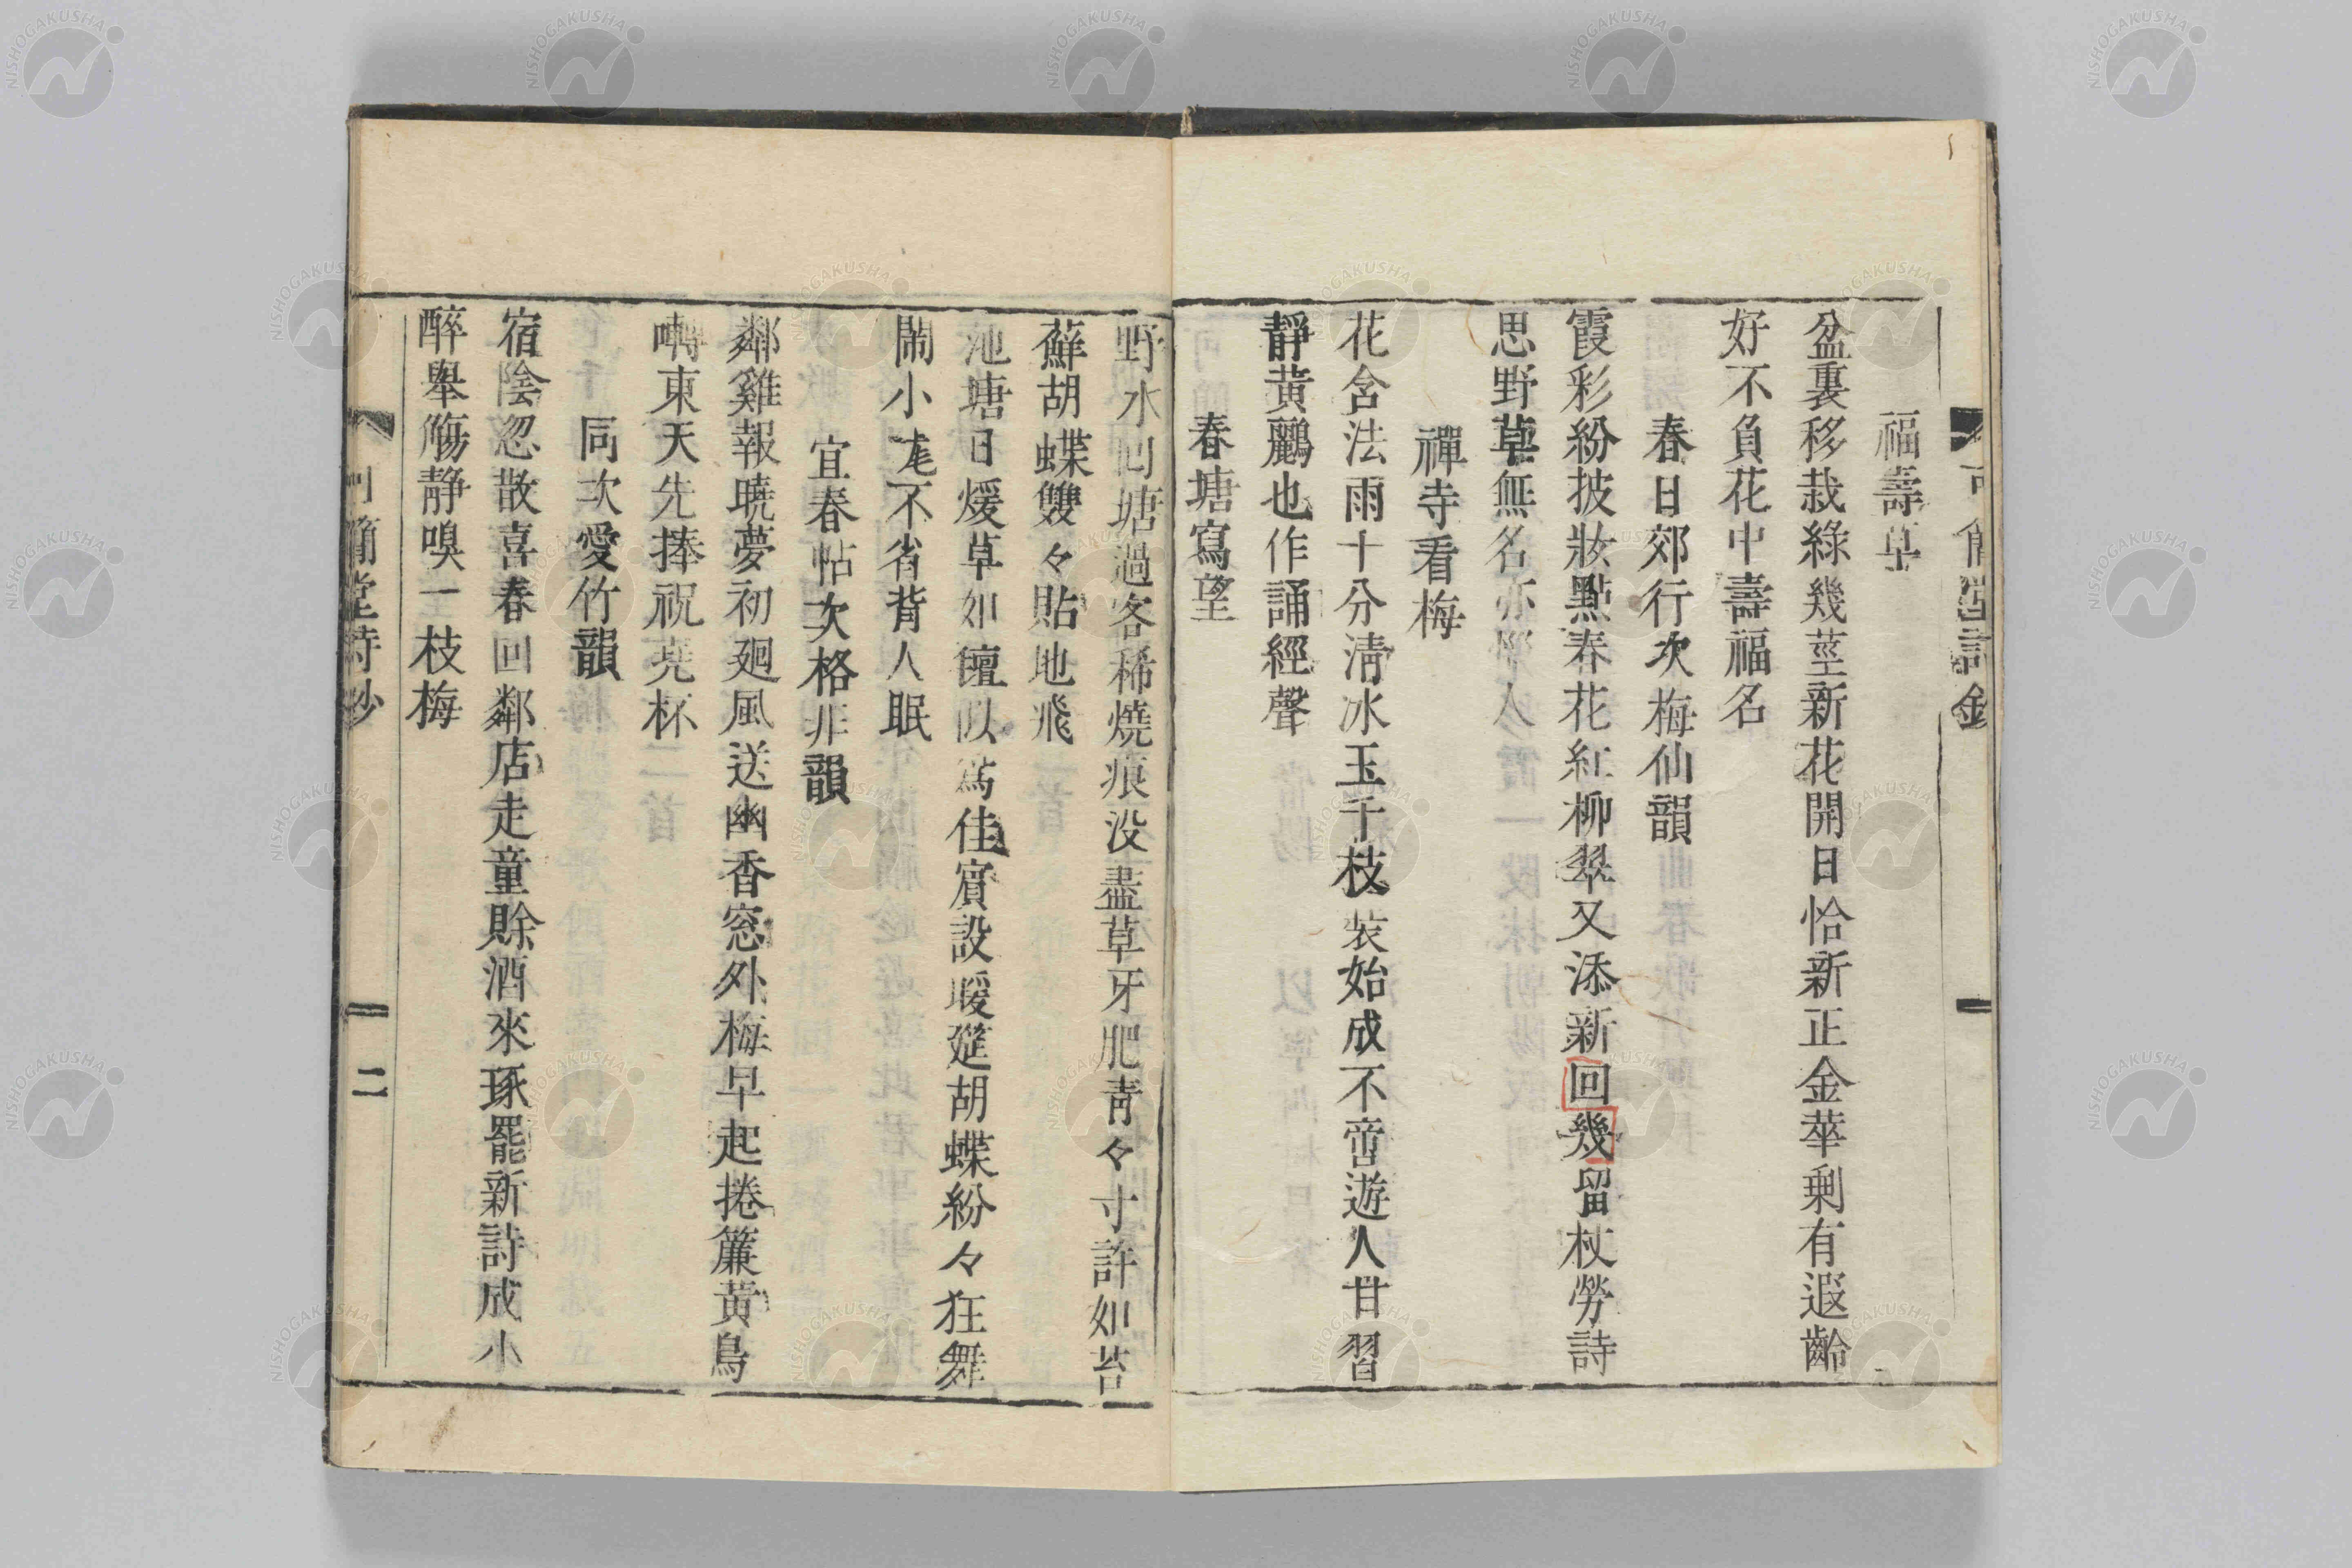 福壽草
盆裏移栽綠幾莖新花開日恰新正金華剩有遐齡
好不負花中壽福名
春日郊行次梅仙韻
霞彩紛披妝點春花紅柳翠又添新回幾留杖勞詩
思野草無名亦可人
禪寺看梅
花含法雨十分淸冰玉千枝裝始成不啻遊人甘習
靜黃鸝也作誦經聲
春塘寫望
野水回塘過客稀燒痕没盡草牙肥靑々寸許如苔
蘚胡蝶雙々貼地飛
池塘日煖草如氊似爲佳賓設暖筵胡蝶紛々狂舞
鬧小尨不省背人眠
宜春帖次格非韻
鄰雞報曉夢初廻風送幽香窓外梅早起捲簾黃鳥
囀東天先捧祝堯杯
同次愛竹韻
宿陰忽散喜春回鄰店走童賖酒來琢罷新詩成小
醉舉觴靜嗅一枝梅
簡堂詩鈔
二
NISHOGAKUSHA